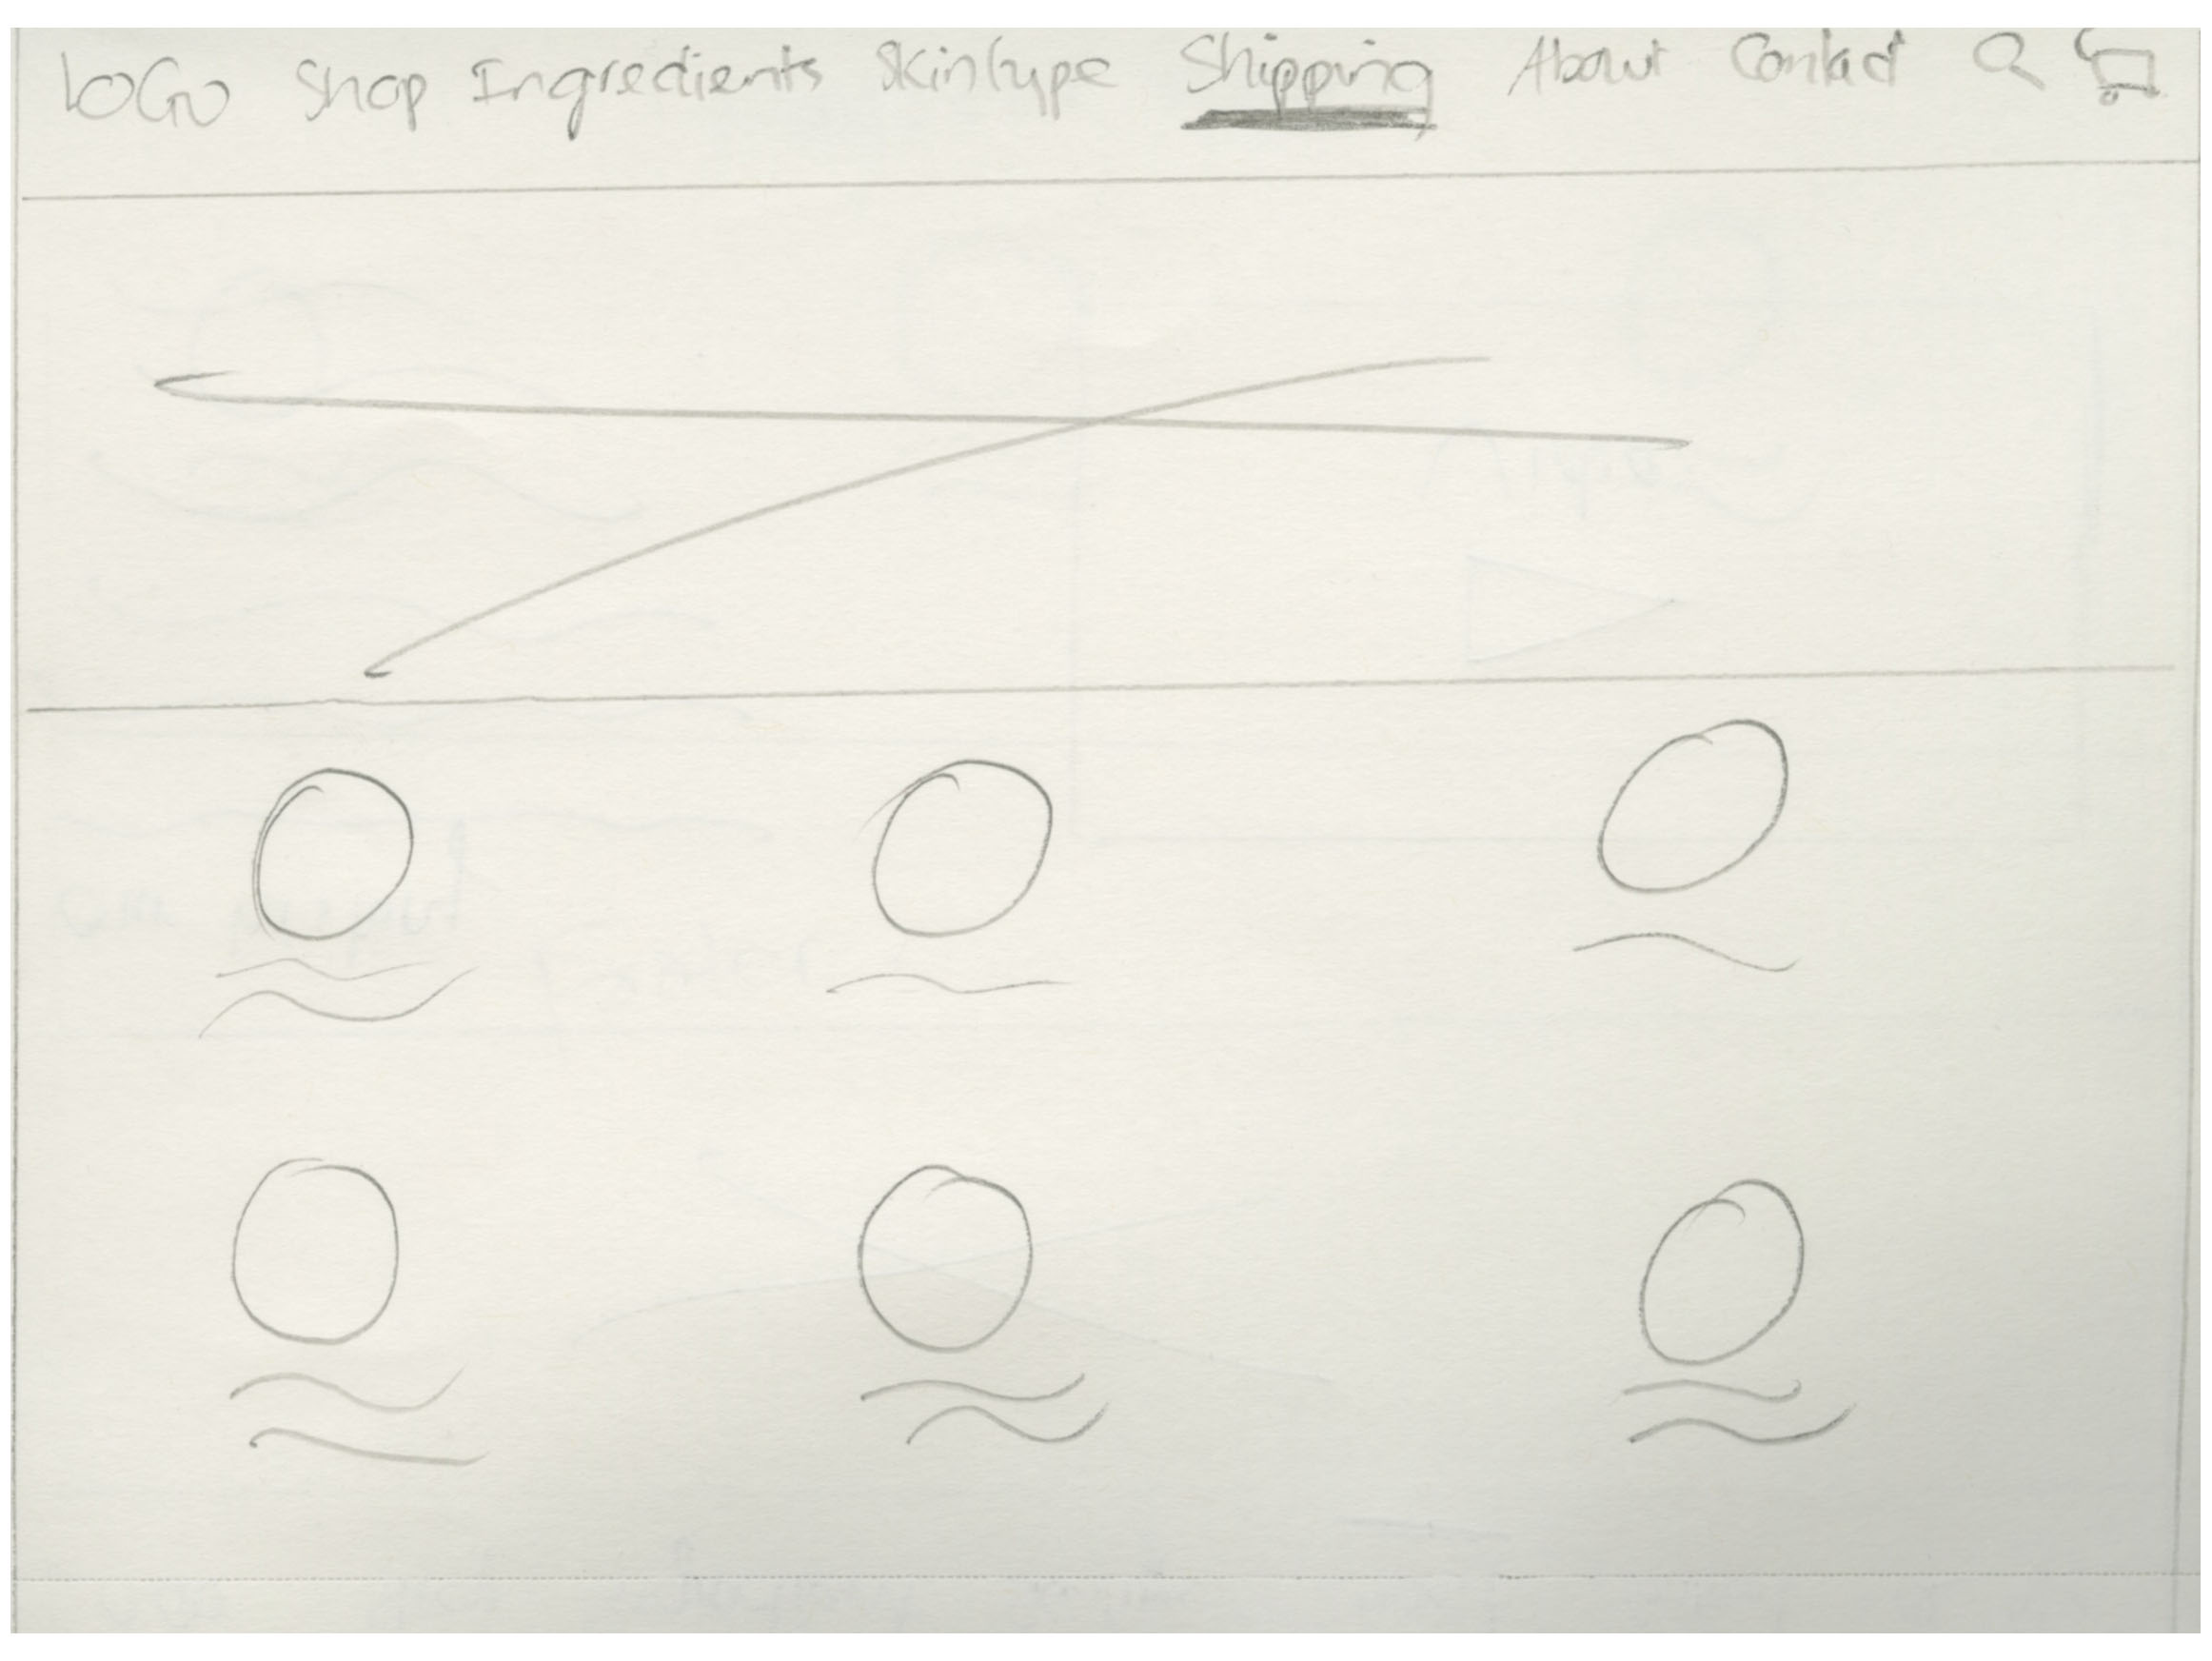 LOGO Shop Ingredients Skintype Shipping About Contact